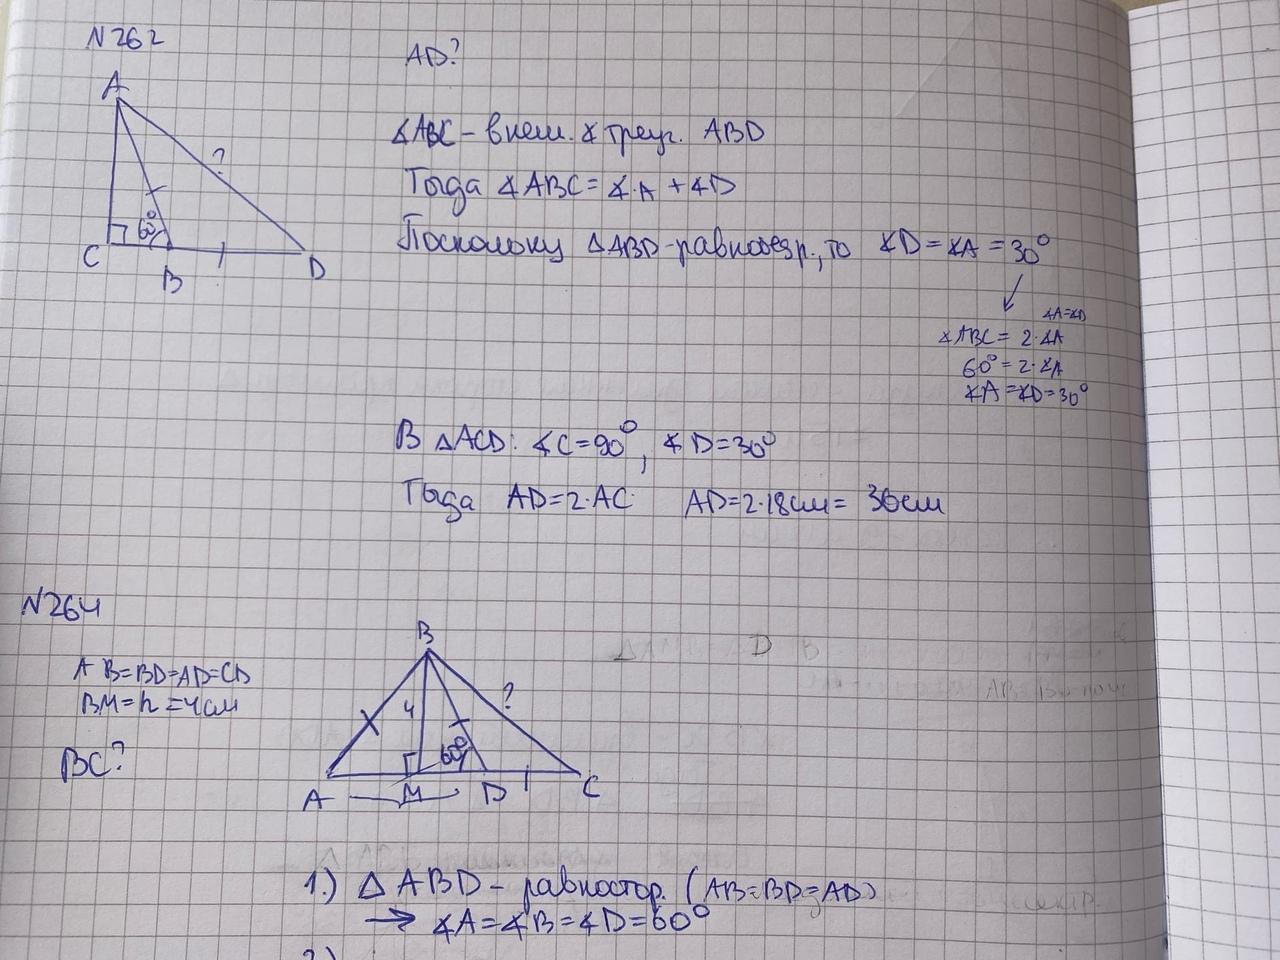 N262
AD?
A
?
60°
C
B
D
∡ABC - внеш. ∡ треуг. ABD
Тогда ∡ABC = ∡A + ∡D
Поскольку ΔABD - равнобедр., то ∡D = ∡A = 30°
∡A=∡D
∡ABC = 2·∡A
60° = 2·∡A
∡A = ∡D = 30°
В ΔACD: ∡C = 90°, ∡D = 30°
Тогда AD = 2·AC AD = 2·18см = 36см
N264
AB=BD=AD=CD
BM=h=4см
BC?
B
4
?
60°
A
M
D
C
1.) Δ ABD - равностор. (AB=BD=AD)
→ ∡A=∡B=∡D=60°
2)